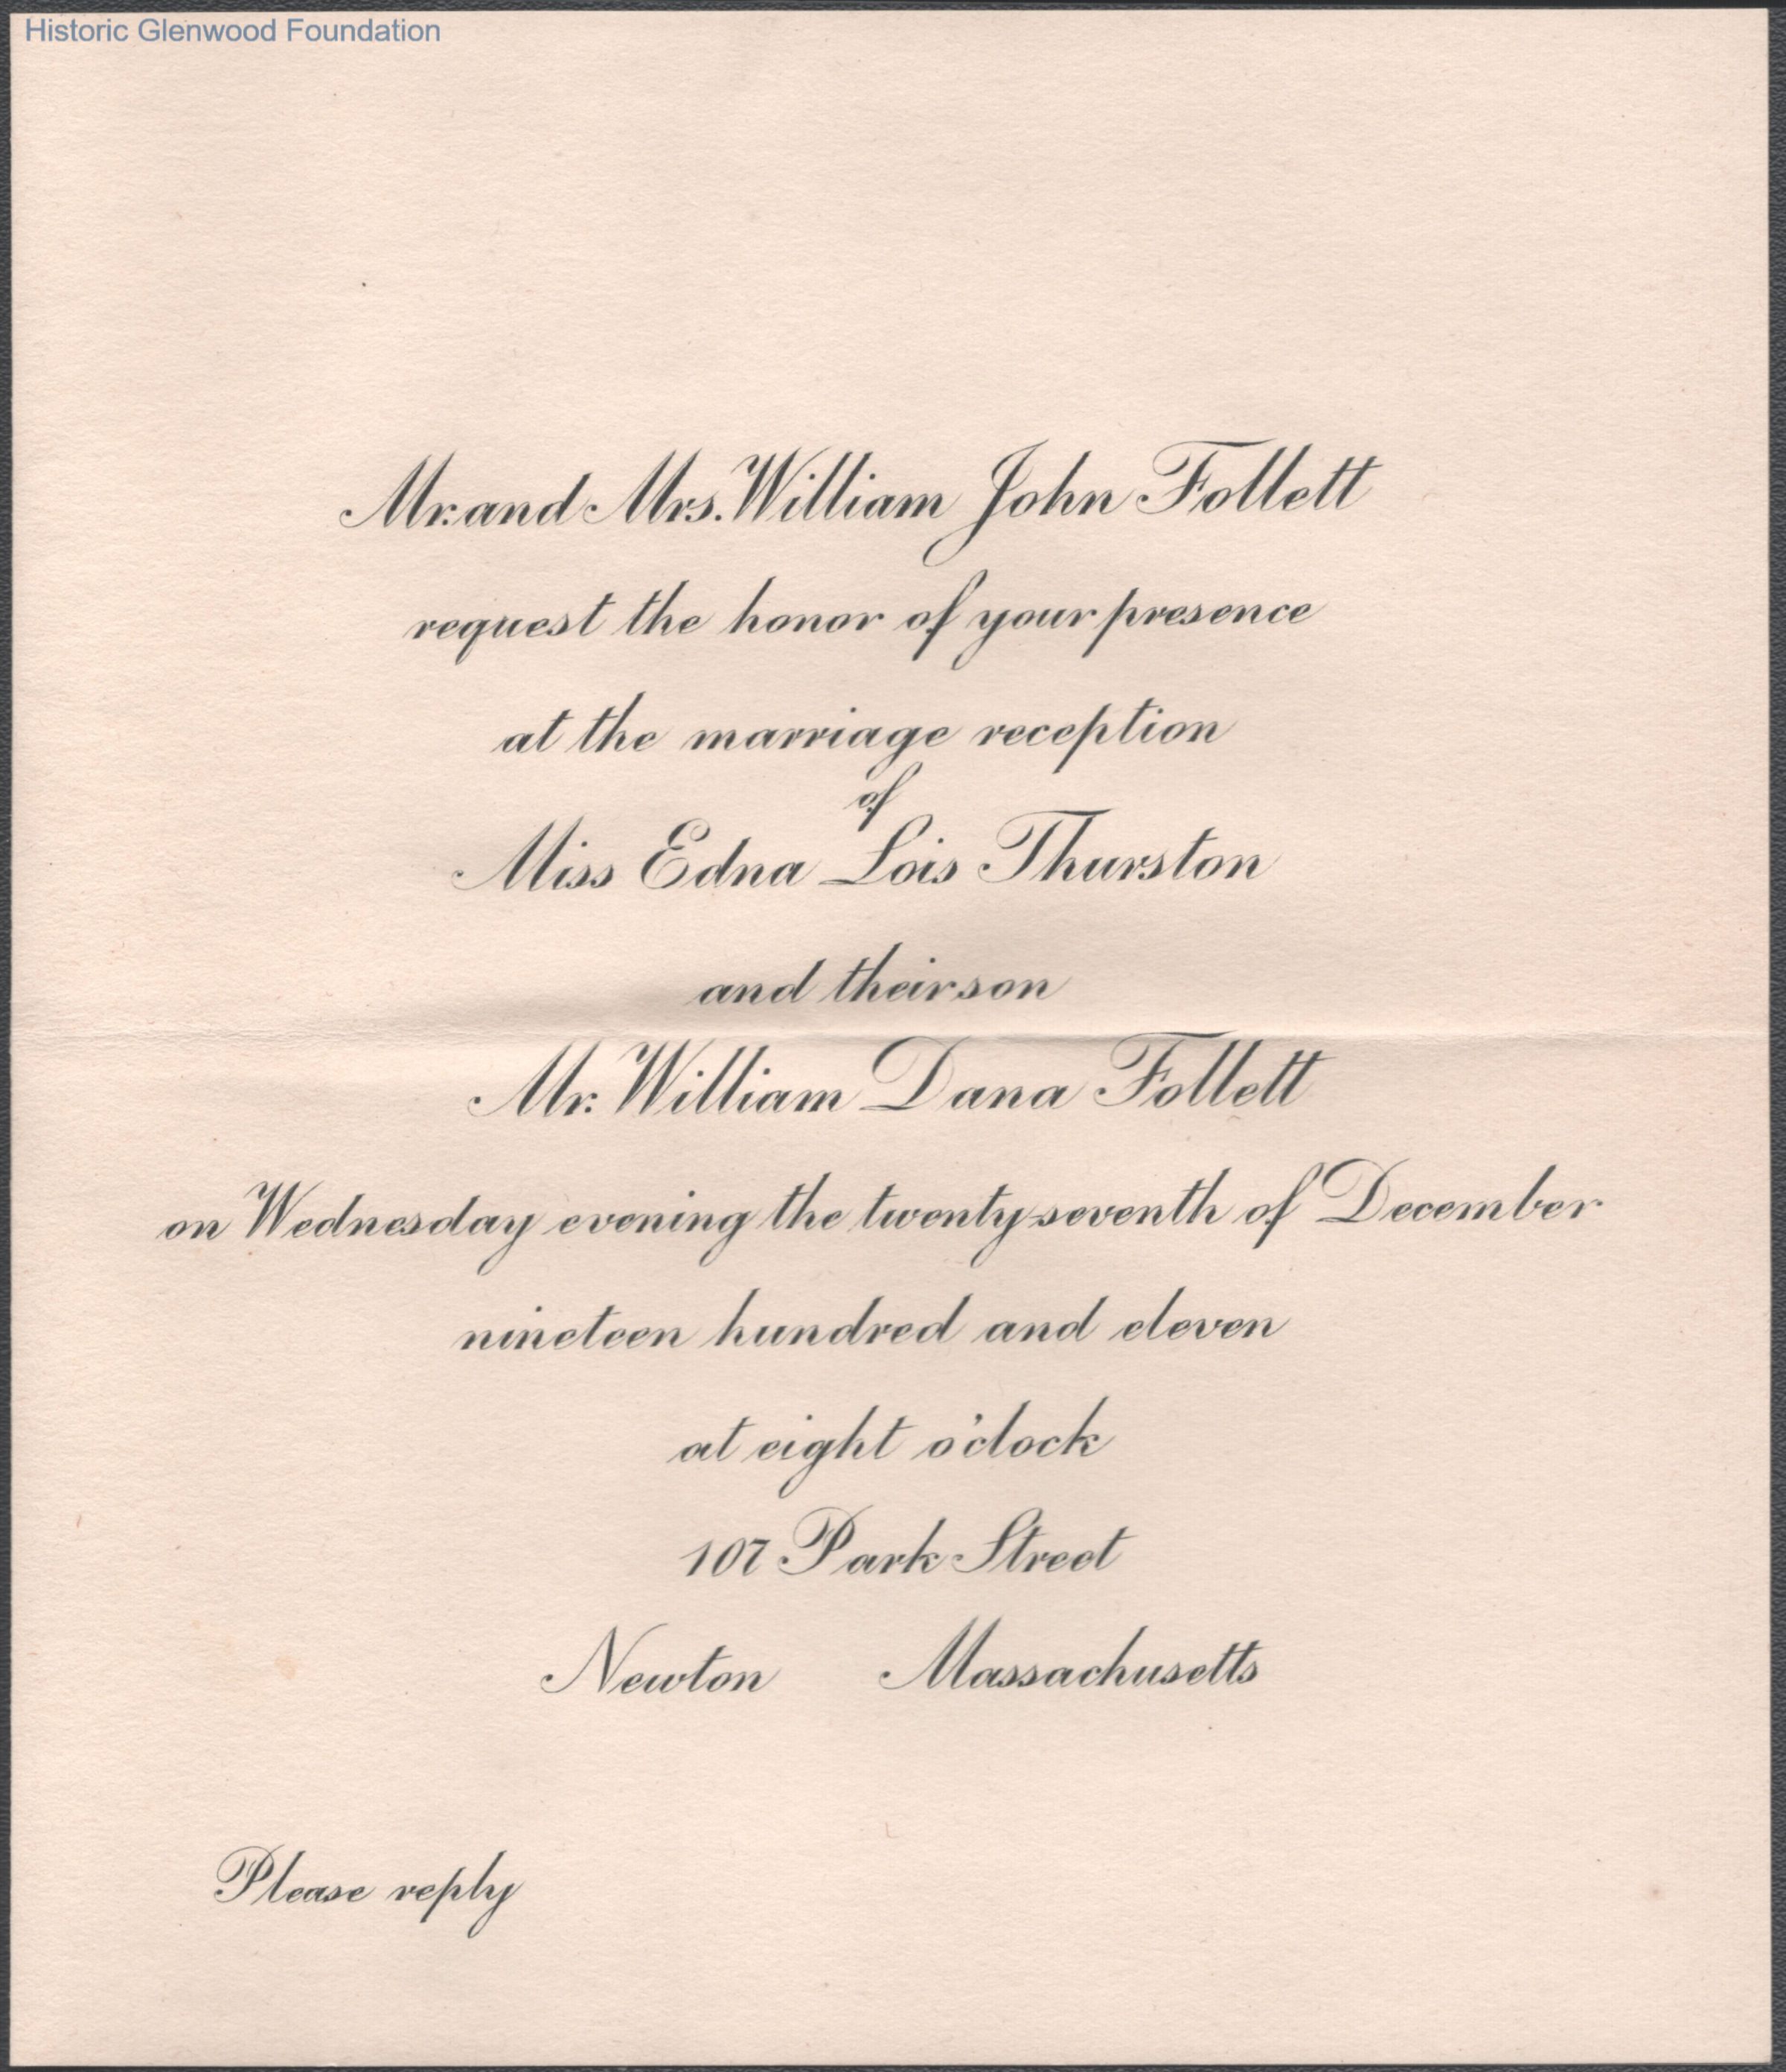 Historic Glenwood Foundation
Mr. and Mrs. William John Follett
request the honor of your presence
at the marriage reception
of
Miss Edna Lois Thurston
and their son
Mr. William Dana Follett
on Wednesday evening the twenty-seventh of December
nineteen hundred and eleven
at eight o'clock
107 Park Street
Newton Massachusetts
Please reply